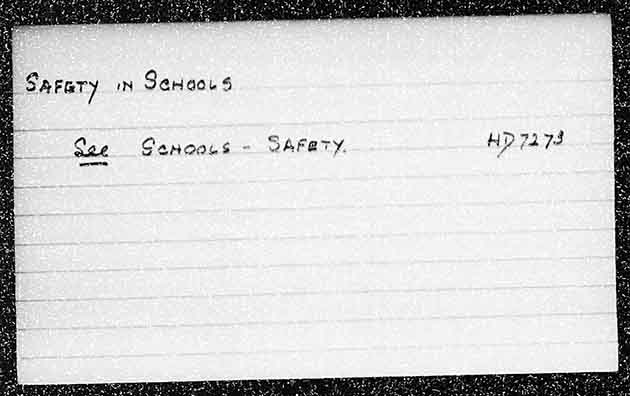 SAFETY IN SCHOOLS
See SCHOOLS - SAFETY. HD7273